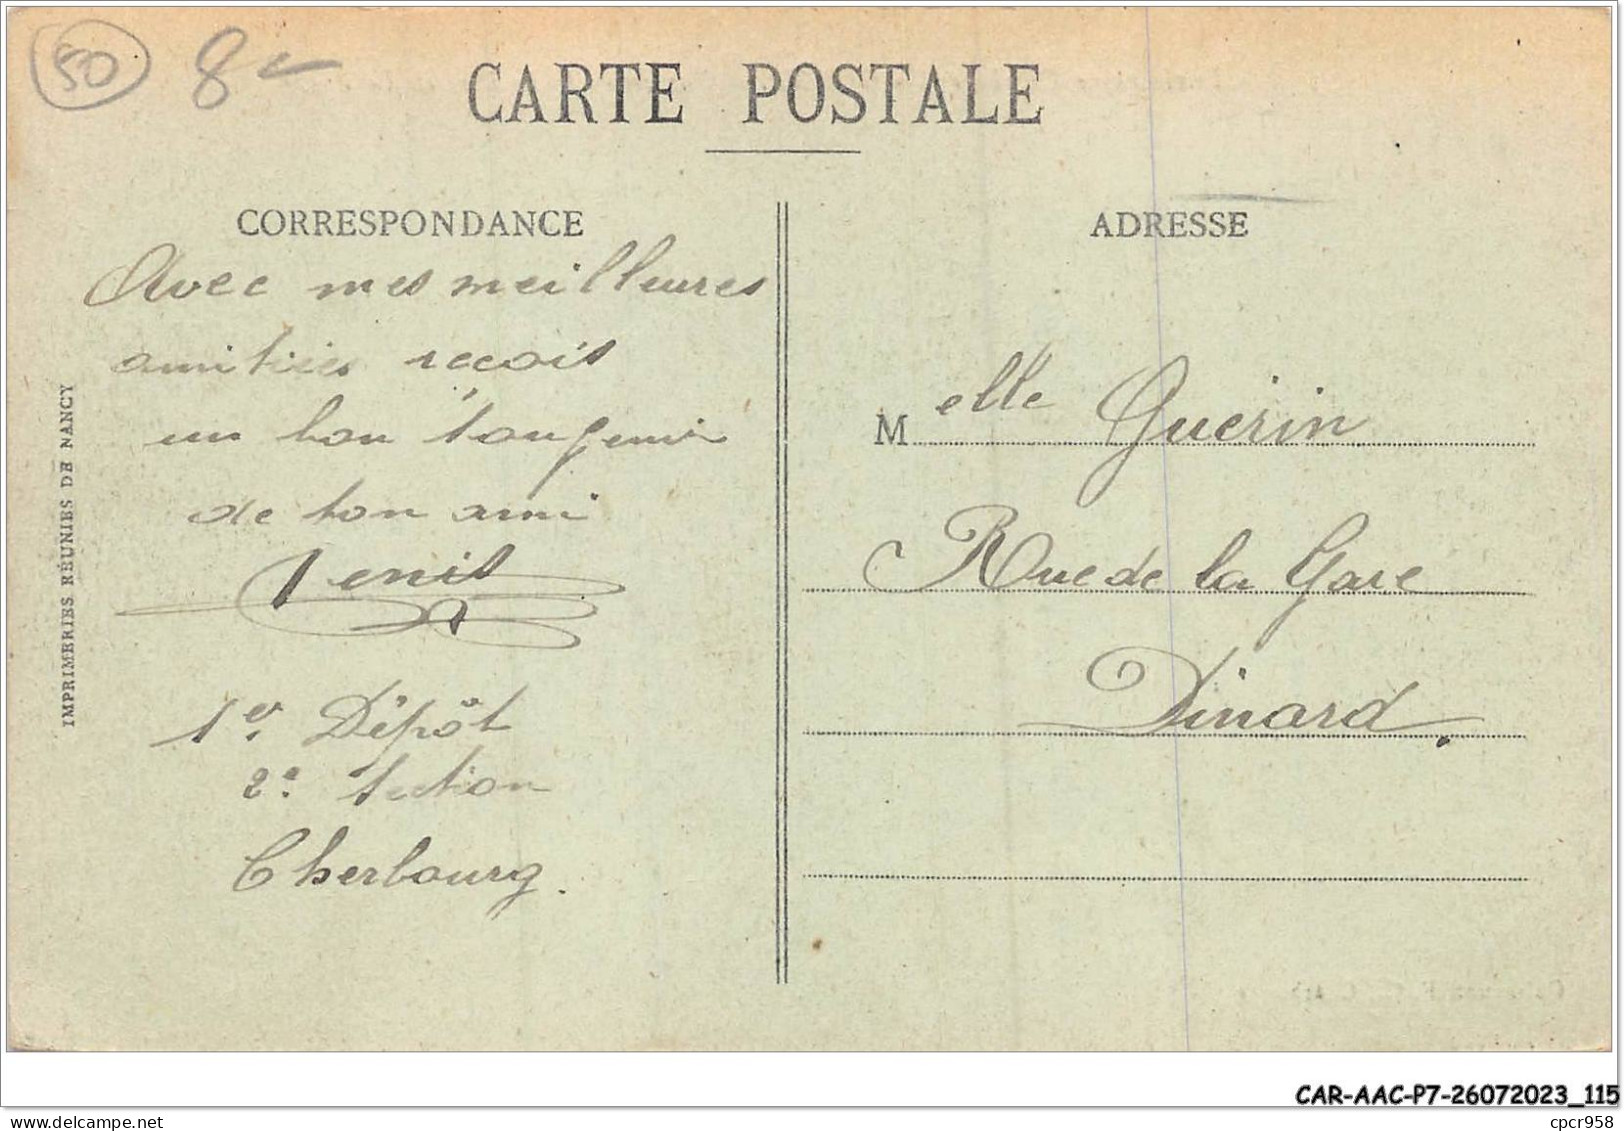 50 8
CARTE POSTALE
CORRESPONDANCE
Avec mes meilleures
amitiés recois
un bon
de ton ami
1er Dépôt
2e Section
Cherbourg.
IMPRIMERIES RÉUNIES DE NANCY
ADRESSE
Melle Guerin
Rue de la Gare
Dinard.
CAR-AAC-P7-26072023_115
delcampe.net
cpcr958